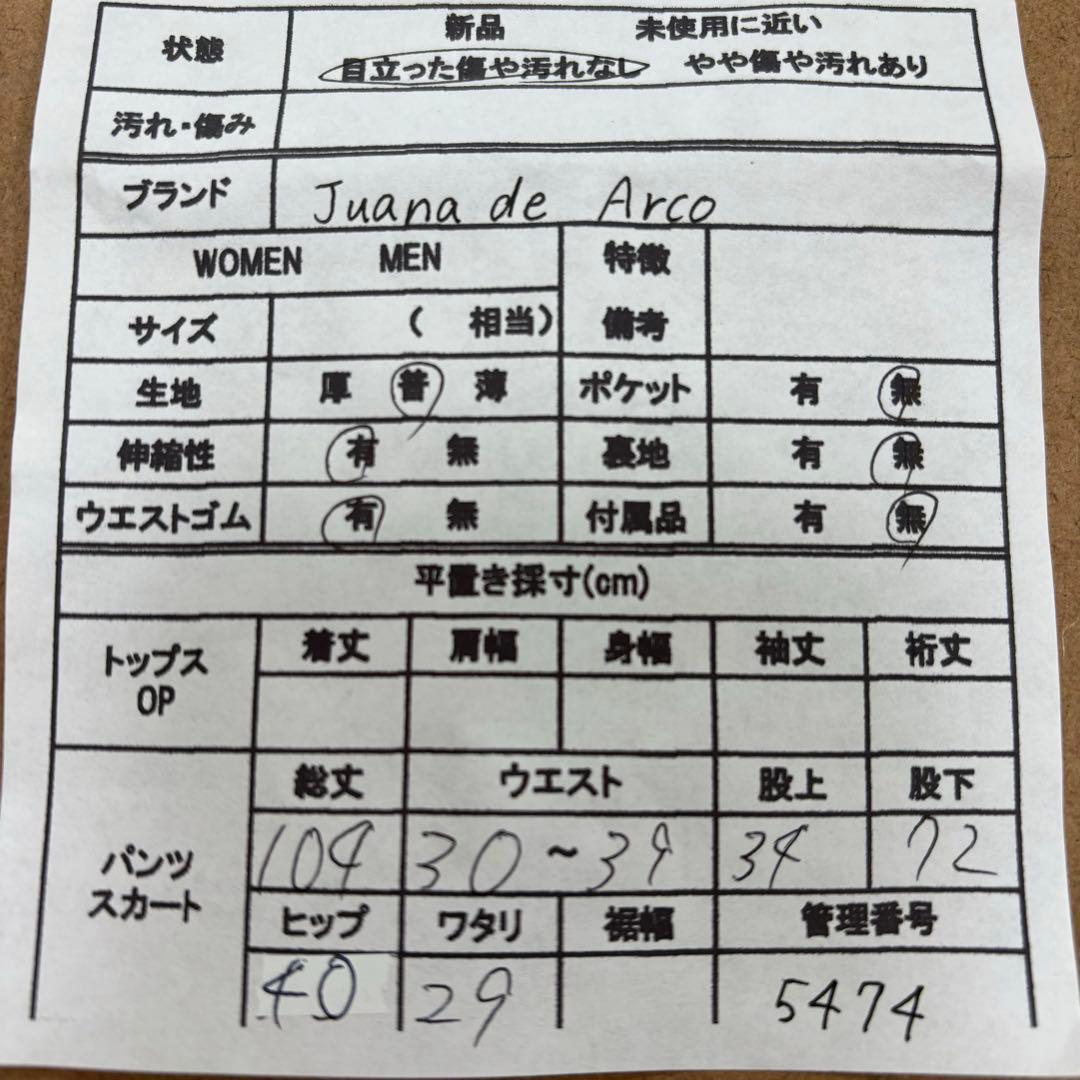 状態 新品 未使用に近い
目立った傷や汚れなし やや傷や汚れあり
汚れ・傷み
ブランド Juana de Arco
WOMEN MEN 特徴
サイズ ( 相当) 備考
生地 厚 普 薄 ポケット 有 無
伸縮性 有 無 裏地 有 無
ウエストゴム 有 無 付属品 有 無
平置き採寸(cm)
トップス 着丈 肩幅 身幅 袖丈 裄丈
OP
総丈 ウエスト 股上 股下
パンツ 104 30~39 34 72
スカート
ヒップ ワタリ 裾幅 管理番号
40 29 5474